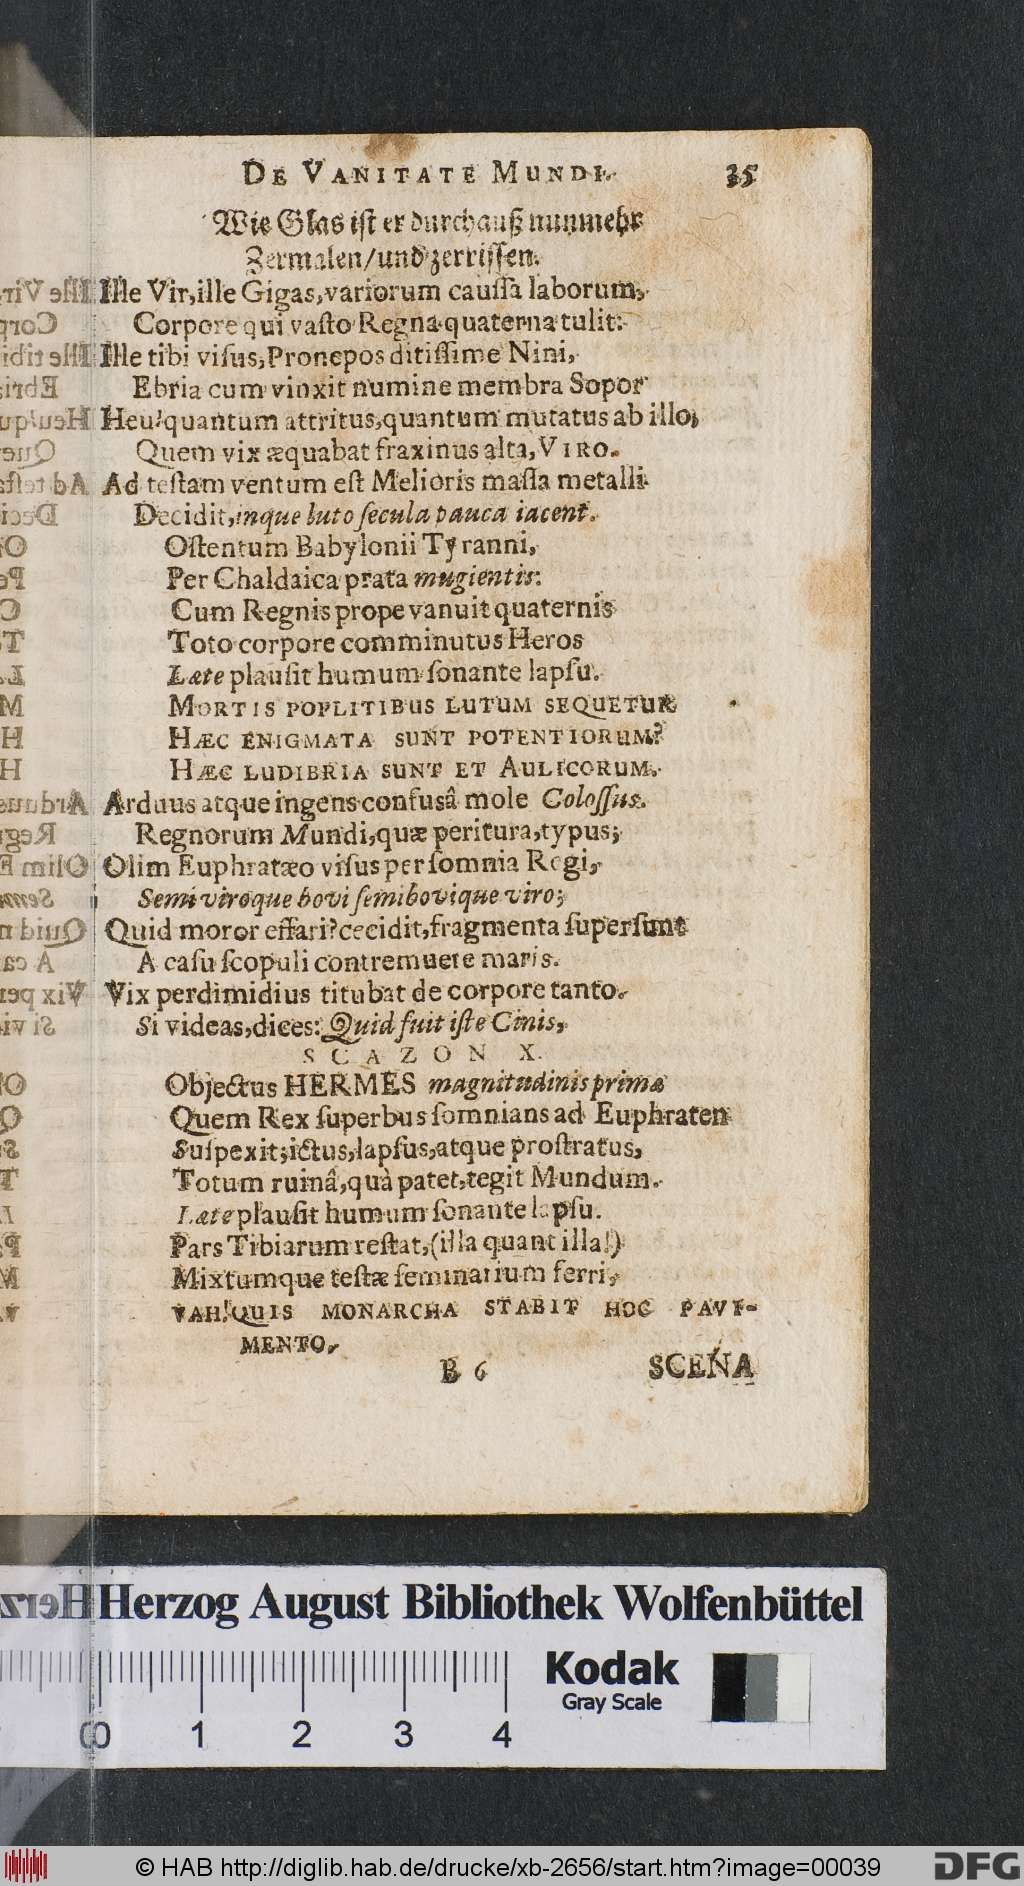 DE VANITATE MUNDI. 35
Wie Glas ist er durchauß nunmehr
Zermalen/und zerrissen.
Ille Vir,ille Gigas,variorum caussa laborum,
Corpore qui vasto Regna quaterna tulit:
Ille tibi visus,Pronepos ditissime Nini,
Ebria cum vinxit numine membra Sopor
Heu!quantum attritus,quantum mutatus ab illo,
Quem vix æquabat fraxinus alta,VIRO.
Ad testam ventum est Melioris massa metalli
Decidit,inque luto secula pauca iacent.
Ostentum Babylonii Tyranni,
Per Chaldaica prata mugientis:
Cum Regnis prope vanuit quaternis
Toto corpore comminutus Heros
Læte plausit humum sonante lapsu.
MORTIS POPLITIBUS LUTUM SEQUETUR
HÆC ENIGMATA SUNT POTENTIORUM?
HÆC LUDIBRIA SUNT ET AULICORUM.
Arduus atque ingens confusâ mole Colossus.
Regnorum Mundi,quæ peritura,typus;
Olim Euphratæo visus per somnia Regi,
Semiviroque bovi semibovique viro;
Quid moror effari?cecidit,fragmenta supersunt
A casu scopuli contremuere maris.
Vix perdimidius titubat de corpore tanto.
Si videas,dices: Quid fuit iste Cinis,
SCAZON X.
Objectus HERMES magnitudinis primæ
Quem Rex superbus somnians ad Euphraten
Suspexit;ictus,lapsus,atque prostratus,
Totum ruinâ,quà patet,tegit Mundum.
Læte plausit humum sonante lapsu.
Pars Tibiarum restat,(illa quant illa!)
Mixtumque testæ seminarium ferri,
VAH!QUIS MONARCHA STABIT HOC PAVI-
MENTO.
B 6 SCENA
Herzog August Bibliothek Wolfenbüttel
Kodak
Gray Scale
0 1 2 3 4
© HAB http://diglib.hab.de/drucke/xb-2656/start.htm?image=00039
DFG